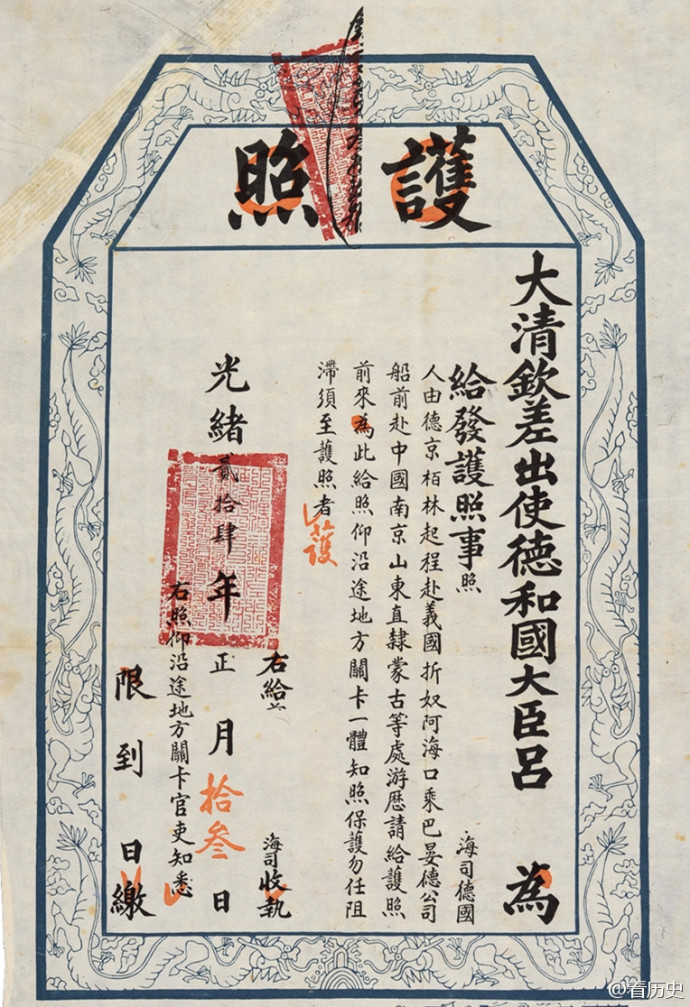 護照
大清欽差出使德和國大臣呂 為
給發護照事照 海司德國
人由德京栢林起程赴義國折奴阿海口乘巴晏德公司
船前赴中國南京山東直隸蒙古等處游歷請給護照
前來為此給照仰沿途地方關卡一體知照保護勿任阻
滯須至護照者
護
右給 海司收執
光緒貳拾肆年正月拾叁日
右照仰沿途地方關卡官吏知悉
限到 日繳
@看历史